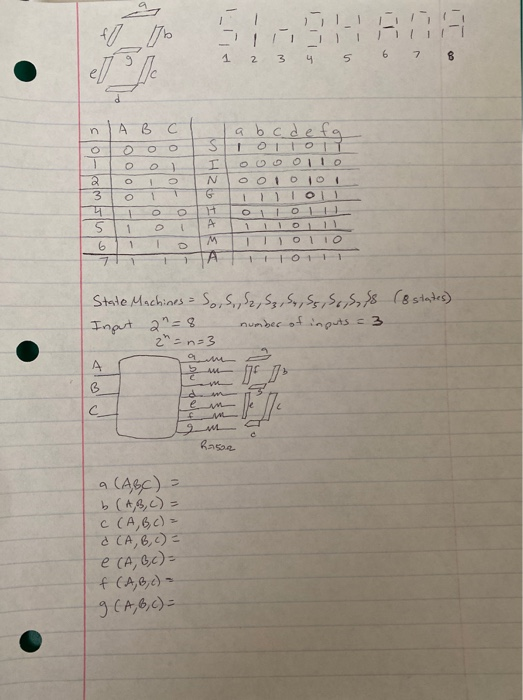 a
f b
g
e c
d
1 2 3 4 5 6 7 8
n A B C a b c d e f g
0 0 0 0 S 1 0 1 1 0 1 1
1 0 0 1 I 0 0 0 0 1 1 0
2 0 1 0 N 0 0 1 0 1 0 1
3 0 1 1 G 1 1 1 1 0 1 1
4 1 0 0 H 0 1 1 0 1 1 1
5 1 0 1 A 1 1 1 0 1 1 1
6 1 1 0 M 1 1 1 0 1 1 0
7 1 1 1 A 1 1 1 0 1 1 1
State Machines = S0, S1, S2, S3, S4, S5, S6, S7, S8 (8 states)
Input 2^n = 8 number of inputs = 3
2^n = n = 3
A a
B b
C c
d
e
f
g
a (A,B,C) =
b (A,B,C) =
c (A,B,C) =
d (A,B,C) =
e (A,B,C) =
f (A,B,C) =
g (A,B,C) =